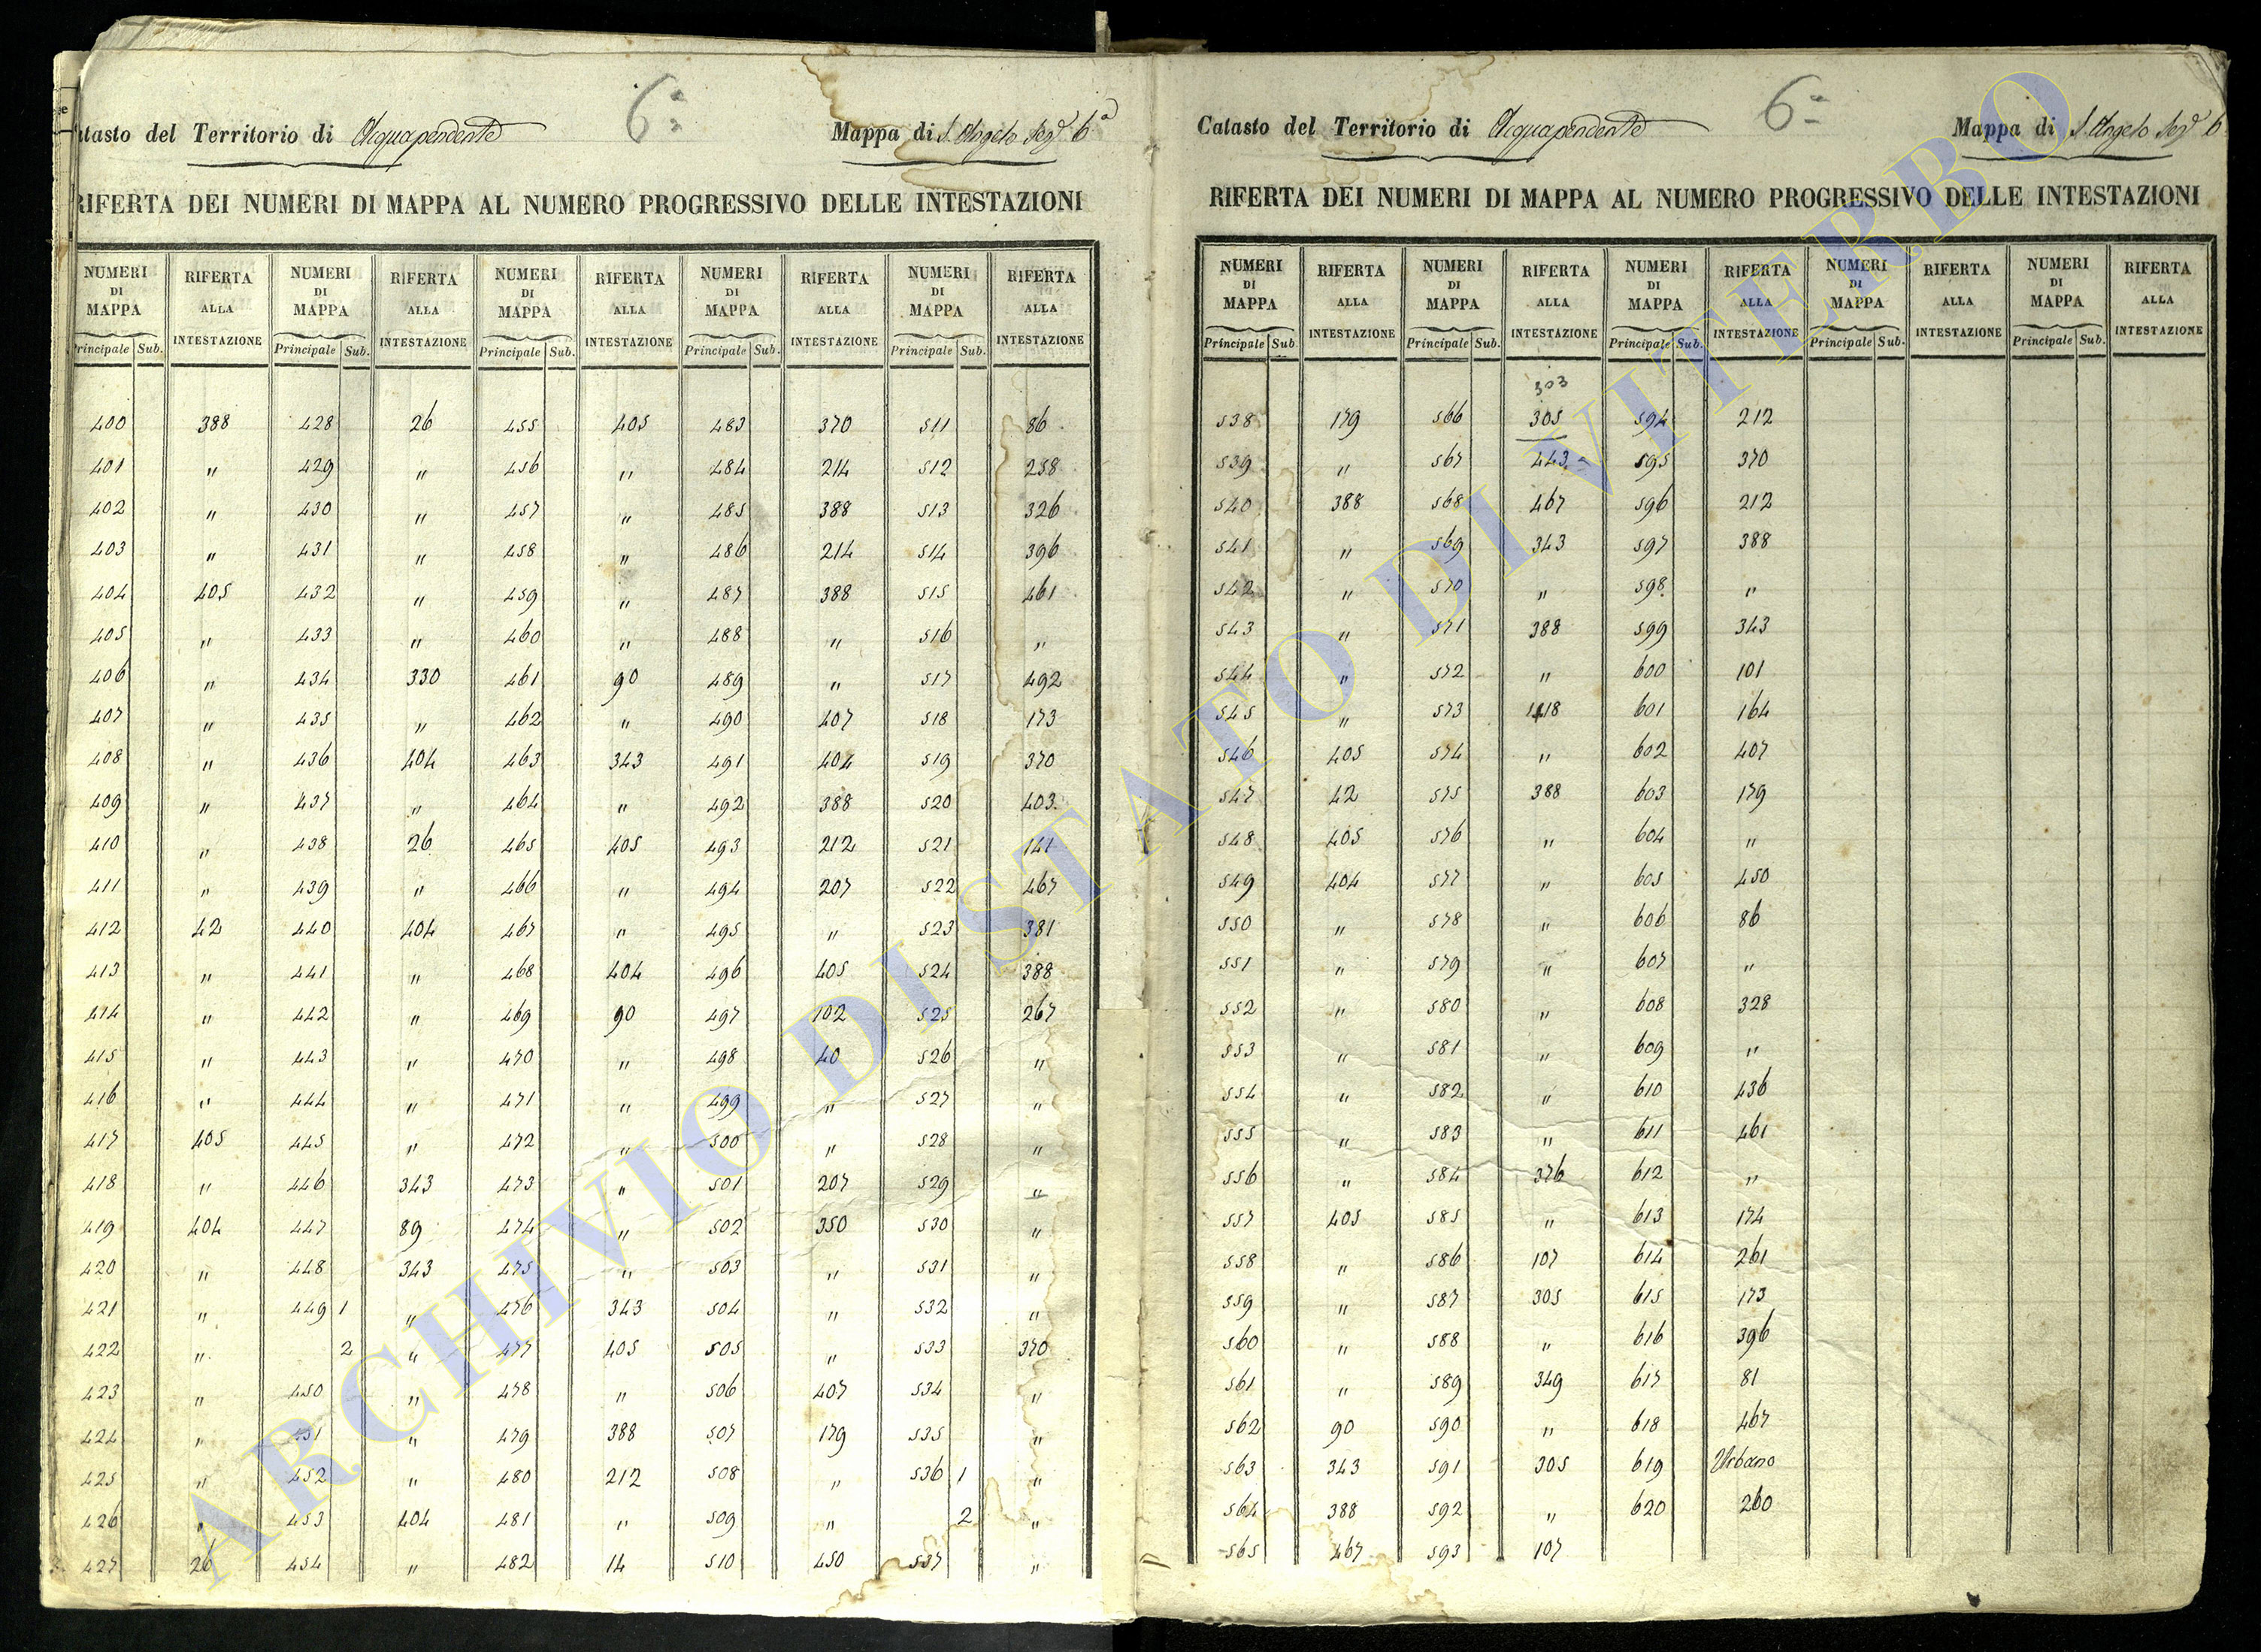 Catasto del Territorio di Acquapendente 6ª Mappa di S. Angelo Sezᵉ 6ª
RIFERTA DEI NUMERI DI MAPPA AL NUMERO PROGRESSIVO DELLE INTESTAZIONI
NUMERI DI MAPPA RIFERTA ALLA INTESTAZIONE NUMERI DI MAPPA RIFERTA ALLA INTESTAZIONE NUMERI DI MAPPA RIFERTA ALLA INTESTAZIONE NUMERI DI MAPPA RIFERTA ALLA INTESTAZIONE NUMERI DI MAPPA RIFERTA ALLA INTESTAZIONE
Principale Sub. Principale Sub. Principale Sub. Principale Sub. Principale Sub.
400 388 428 26 455 405 483 370 511 86
401 " 429 " 456 " 484 214 512 258
402 " 430 " 457 " 485 388 513 326
403 " 431 " 458 " 486 214 514 396
404 405 432 " 459 " 487 388 515 461
405 " 433 " 460 " 488 " 516 "
406 " 434 330 461 90 489 " 517 492
407 " 435 " 462 " 490 407 518 173
408 " 436 404 463 343 491 404 519 370
409 " 437 " 464 " 492 388 520 403
410 " 438 26 465 405 493 212 521 141
411 " 439 " 466 " 494 207 522 467
412 42 440 404 467 " 495 " 523 381
413 " 441 " 468 404 496 405 524 388
414 " 442 " 469 90 497 102 525 267
415 " 443 " 470 " 498 40 526 "
416 " 444 " 471 " 499 " 527 "
417 405 445 " 472 " 500 " 528 "
418 " 446 343 473 " 501 207 529 "
419 404 447 89 474 " 502 350 530 "
420 " 448 343 475 " 503 " 531 "
421 " 449 1 " 476 343 504 " 532 "
422 " 2 " 477 405 505 " 533 370
423 " 450 " 478 " 506 407 534 "
424 " 451 " 479 388 507 179 535 "
425 " 452 " 480 212 508 " 536 1 "
426 " 453 404 481 " 509 " 2 "
427 26 454 " 482 14 510 450 537 "
Catasto del Territorio di Acquapendente 6ª Mappa di S. Angelo Sezᵉ 6
RIFERTA DEI NUMERI DI MAPPA AL NUMERO PROGRESSIVO DELLE INTESTAZIONI
NUMERI DI MAPPA RIFERTA ALLA INTESTAZIONE NUMERI DI MAPPA RIFERTA ALLA INTESTAZIONE NUMERI DI MAPPA RIFERTA ALLA INTESTAZIONE NUMERI DI MAPPA RIFERTA ALLA INTESTAZIONE NUMERI DI MAPPA RIFERTA ALLA INTESTAZIONE
Principale Sub. Principale Sub. Principale Sub. Principale Sub. Principale Sub.
303
538 179 566 305 594 212
539 " 567 443 595 370
540 388 568 467 596 212
541 " 569 343 597 388
542 " 570 " 598 "
543 " 571 388 599 343
544 " 572 " 600 101
545 " 573 601 164
546 405 574 " 602 407
547 42 575 388 603 179
548 405 576 " 604 "
549 404 577 " 605 450
550 " 578 " 606 86
551 " 579 " 607 "
552 " 580 " 608 328
553 " 581 " 609 "
554 " 582 " 610 436
555 " 583 " 611 461
556 " 584 376 612 "
557 405 585 " 613 174
558 " 586 107 614 261
559 " 587 305 615 173
560 " 588 " 616 396
561 " 589 349 617 81
562 90 590 " 618 467
563 343 591 305 619 Urbano
564 388 592 " 620 260
565 467 593 107
ARCHIVIO DI STATO DI VITERBO